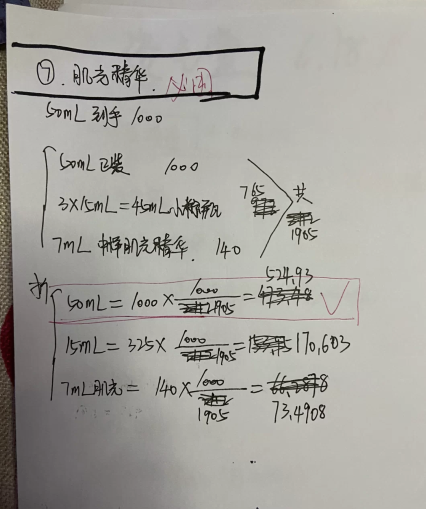 ⑦. 肌光精华.
50mL 到手 1000
50mL 正装 1000
3×15mL=45mL 小棕瓶 765
7mL 中样肌光精华. 140
共 1905
折
50mL = 1000 × 1000/1905 = 524.93 ✓
15mL = 325 × 1000/1905 = 170.603
7mL 肌光 = 140 × 1000/1905 = 73.4908